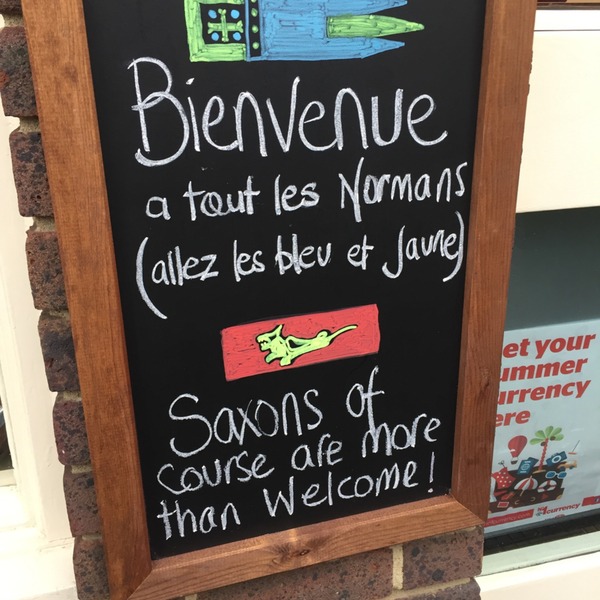 Bienvenue
a tout les Normans
(allez les bleu et Jaune)
Saxons of
course are more
than Welcome!
et your
ummer
urrency
ere
currency